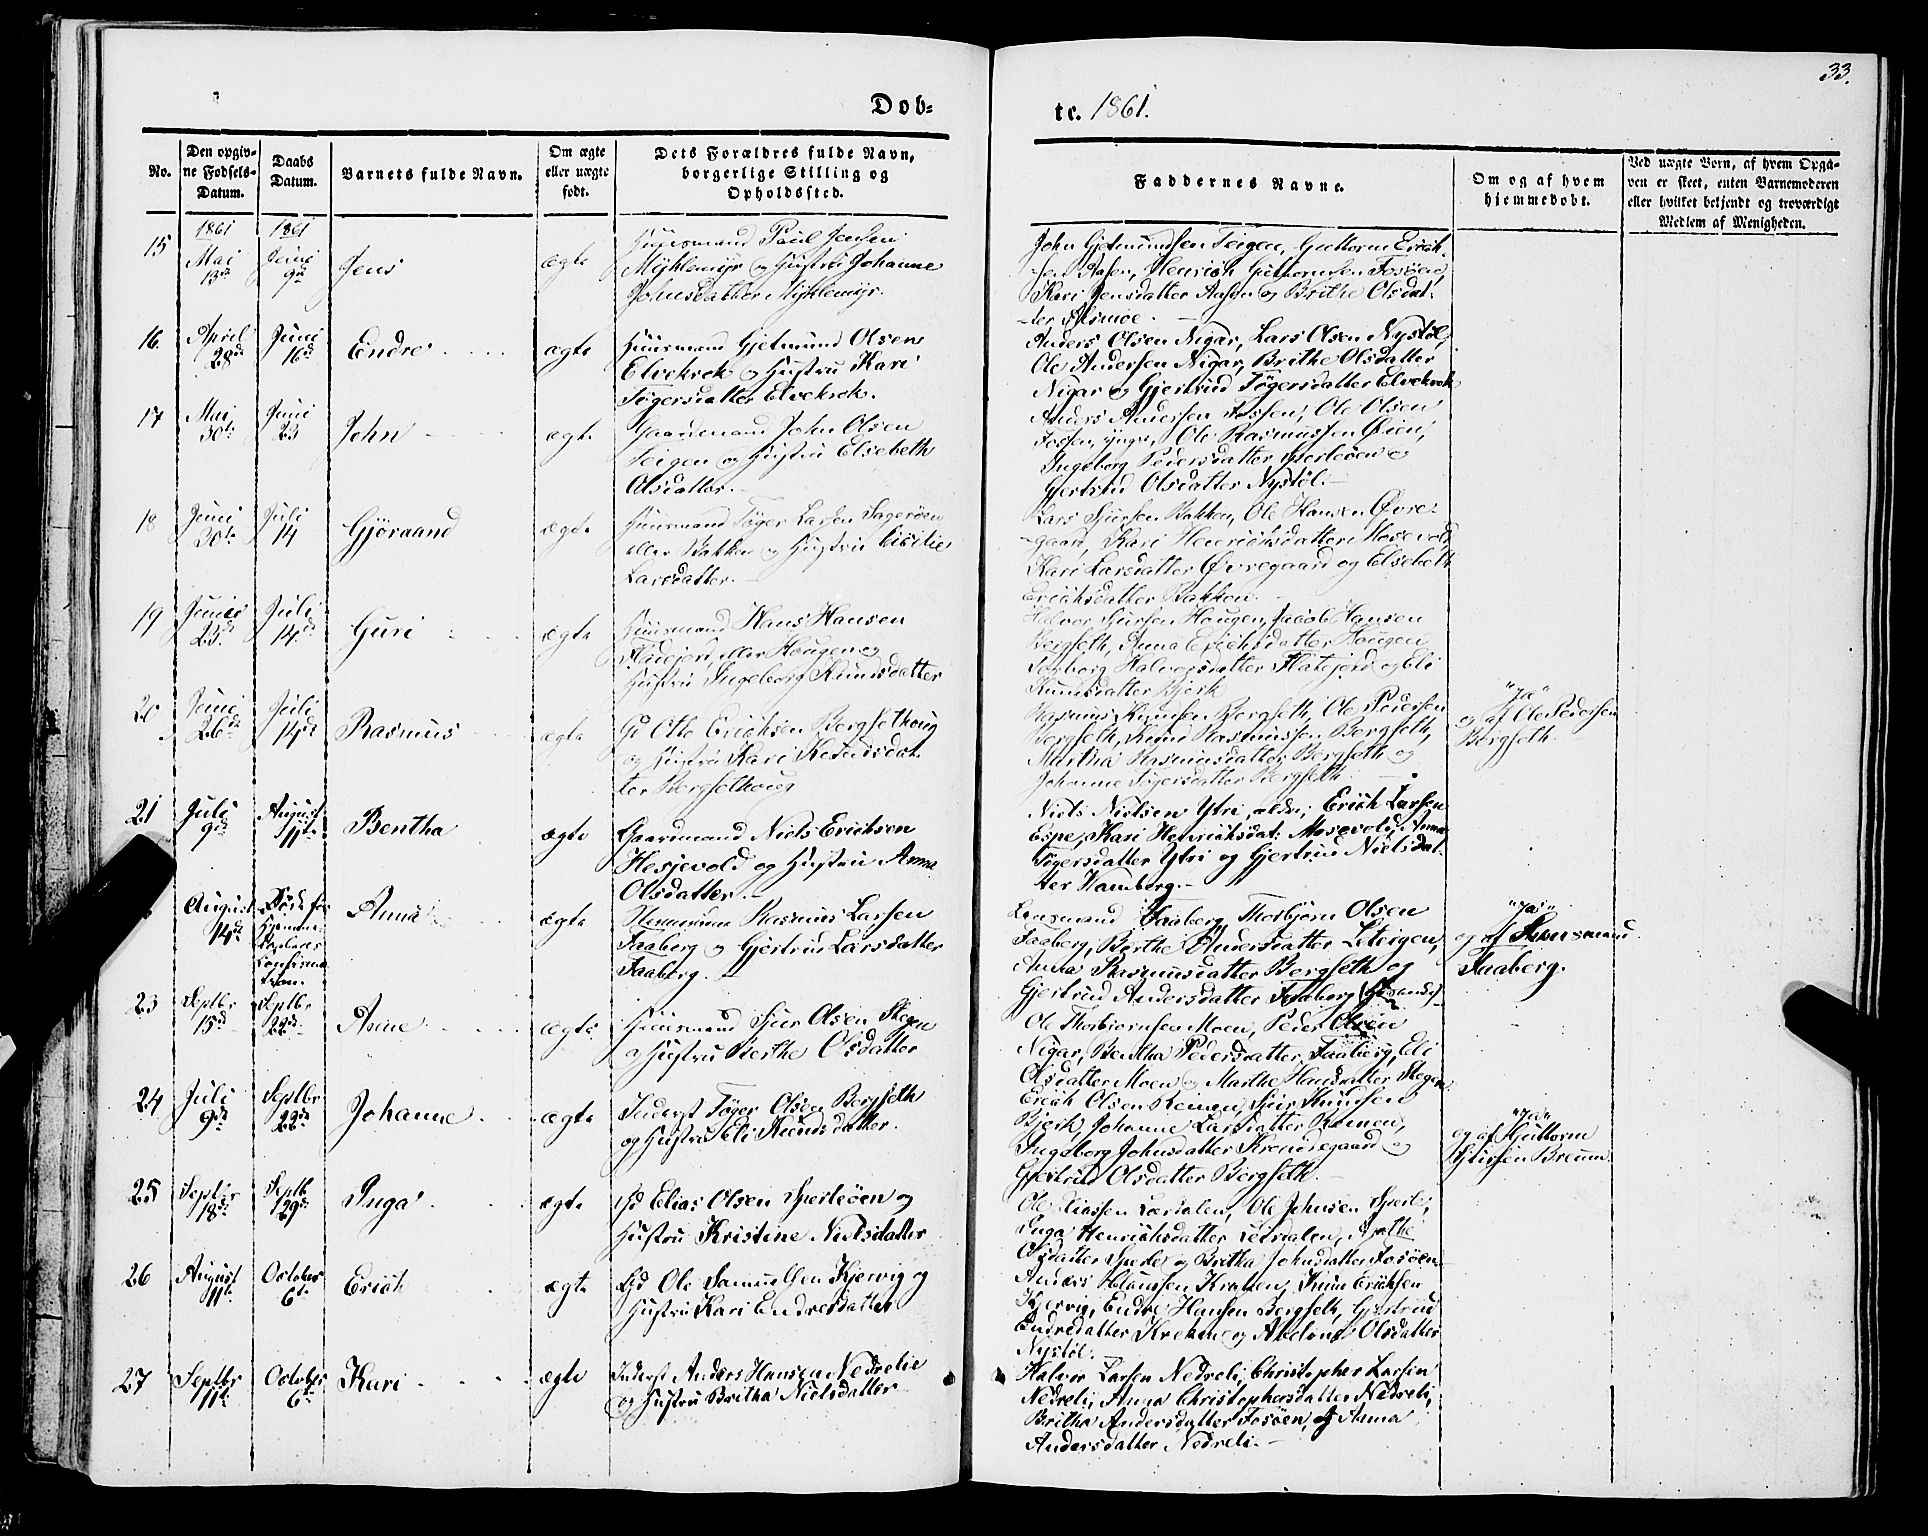 33.
Dob=
te. 1861.
No.
Den opgiv-
ne Fødsels-
Datum.
Daabs
Datum.
Barnets fulde Navn.
Om ægte
eller uægte
født.
Dets Forældres fulde Navn,
borgerlige Stilling og
Opholdssted.
Faddernes Navne.
Om og af hvem
hjemmedøbt.
Ved uægte Børn, af hvem Opga-
ven er skeet, enten Barnemoderen
eller hvilket bekjendt og troværdigt
Medlem af Menigheden.
1861
1861
15
Mai
13de
Juni
9de
Jens
ægte
Huusmand Paul Jensen
Myklemyr og Hustru Johanne
Johnsdatter Myklemyr.
John Gjetmundsen Teigen, Guttorm Erich-
sen Aasen, Henrich Guttormsen Fosøen,
Kari Jensdatter Aasen og Brithe Olsdat-
ter
16.
April
28de
Juni
16de
Endre
ægte
Huusmand Gjetmund Olsen
Elvekrok og Hustru Kari
Tøgersdatter Elvekrok.
Anders Olsen Nigar, Lars Olsen Nystøl,
Ole Andersen Nigar, Brithe Olsdatter
Nigar og Gjertrud Tøgersdatter Elvekrok
17
Mai
30te
Juni
23
John
ægte
Gaardmand John Olsen
Teigen og Hustru Elsebeth
Olsdatter.
Anders Andersen Fossen, Ole Olsen
Fossen, yngre, Ole Rasmussen Øien,
Ingeborg Pedersdatter Sperleøen og
Gjertrud Olsdatter Nystøl.
18
Juni
30te
Juli
14
Gjøraand
ægte
Huusmand Tøger Larsen Sagerøen
eller Bakken og Hustru Cicilie
Larsdatter.
Lars Sjursen Bakken, Ole Hansen Øvre-
gaard, Kari Henrichsdatter Mosevold,
Kari Larsdatter Øvregaard og Elsebeth
Erichsdatter Bakken.
19
Juni
23de
Juli
14de
Guri
ægte
Huusmand Hans Hansen
Flatejord, eller Haugen og
Hustru Ingeborg Knudsdatter
Halvor Sjursen Haugen, Jacob Hansen
Bergseth, Anna Erichsdatter Haugen
Ingborg Halvorsdatter Flatejord og Eli
Knudsdatter Bjerk
20
Juni
26de
Juli
14de
Rasmus
ægte
Gd Otto Erichsen Bergsethoug
og Hustru Kari Knudsdat-
ter Bergsethoug
Rasmus Knudsen Bergseth, Ole Pedersen
Bergseth, Knud Rasmussen Bergseth,
Martha Rasmusdatter Bergseth og
Johanne Tøgersdatter Bergseth.
"Ja"
og af Ole Pedersen
Bergseth.
21
Juli
9de
August
11te
Bentha
ægte
Gaardmand Niels Erichsen
Hesjevold og Hustru Anna
Olsdatter.
Niels Nielsen Ytri, ældre, Erich Larsen
Espe, Kari Henrichsdat: Mosevold, Anna
Tøgersdatter Ytri og Gjertrud Nielsdat-
ter Hamberg.
August
14de
Død før
Hjemme
Daabens
Confirma
tion.
Anna
ægte
Rasmus Larsen
Faaberg og Gjertrud Larsdatter
Faaberg.
Lensmand Faaberg, Thorbjørn Olsen
Faaberg, Berthe Andersdatter Leteigen,
Anna Rasmusdatter Bergseth og
Gjertrud Andersdatter Faaberg
"Ja"
og af Lensmand
Faaberg.
23
Septbr
15de
Septbr
22de
Anne
ægte
Huusmand Sjur Olsen Stegen
og Hustru Berthe Olsdatter
Ole Thorbjørnsen Moen, Peder Olsen
Nigar, Bentha Pedersdatter Faaberg, Eli
Olsdatter Moen og Marthe Hansdatter Stegen
24
Juli
9de
Septbr
22de
Johanne
ægte
Inderst Tøger Olsen Bergseth
og Hustru Eli Knudsdatter.
Erich Olsen Reinen, Sjur Knudsen
Bjerk, Johanne Larsdatter Reinen,
Ingeborg Johnsdatter Krondregaard og
Gjertrud Olsdatter Bergseth.
"Ja"
og af Guttorm
Breum
25
Septbr
18de
Septb
29de
Inga
ægte
Gd Elias Olsen Sperleøen og
Hustru Kristine Nielsdatter
Ole Eliassen Leirdalen, Ole Johnsen Sperle,
Inga Henrichsdatter Leirdalen, Agathe
Olsdatter Sperle og Britha Johnsdatter Fosøen
26
August
11te
October
6te
Erich
ægte
Gd Ole Samuelsen Kjervig og
Hustru Kari Endresdatter
Anders Clausen Kroken, Knud Erichsen
Kjervig, Endre Hansen Bergseth, Gjertrud
Endredatter Kroken og Abelone Olsdatter
Nystøl.
27
Septbr
11te
October
6te
Kari
ægte
Inderst Anders Hansen Nedrelie
og Hustru Britha Nielsdatter
Halvor Larsen Nedreli, Christopher Larsen
Nedreli, Anna Christophersdatter Nedreli,
Britha Andersdatter Fosøen, og Anna
Andersdatter Nedreli.